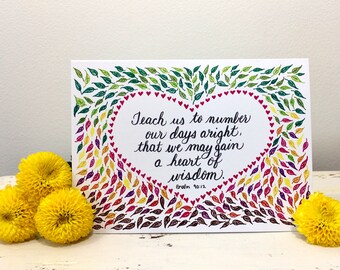 Teach us to number
our days aright,
that we may gain
a heart of
wisdom.
Psalm 90:12